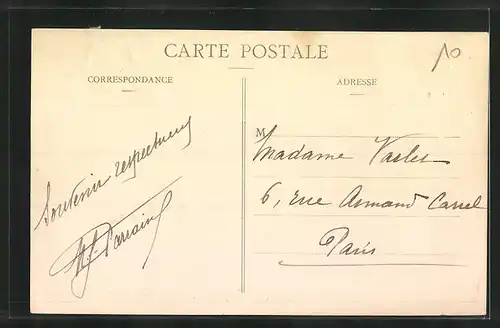 CARTE POSTALE
10
CORRESPONDANCE
ADRESSE
Souvenir respectueux
M
Madame
6, rue Armand Carrel
Paris